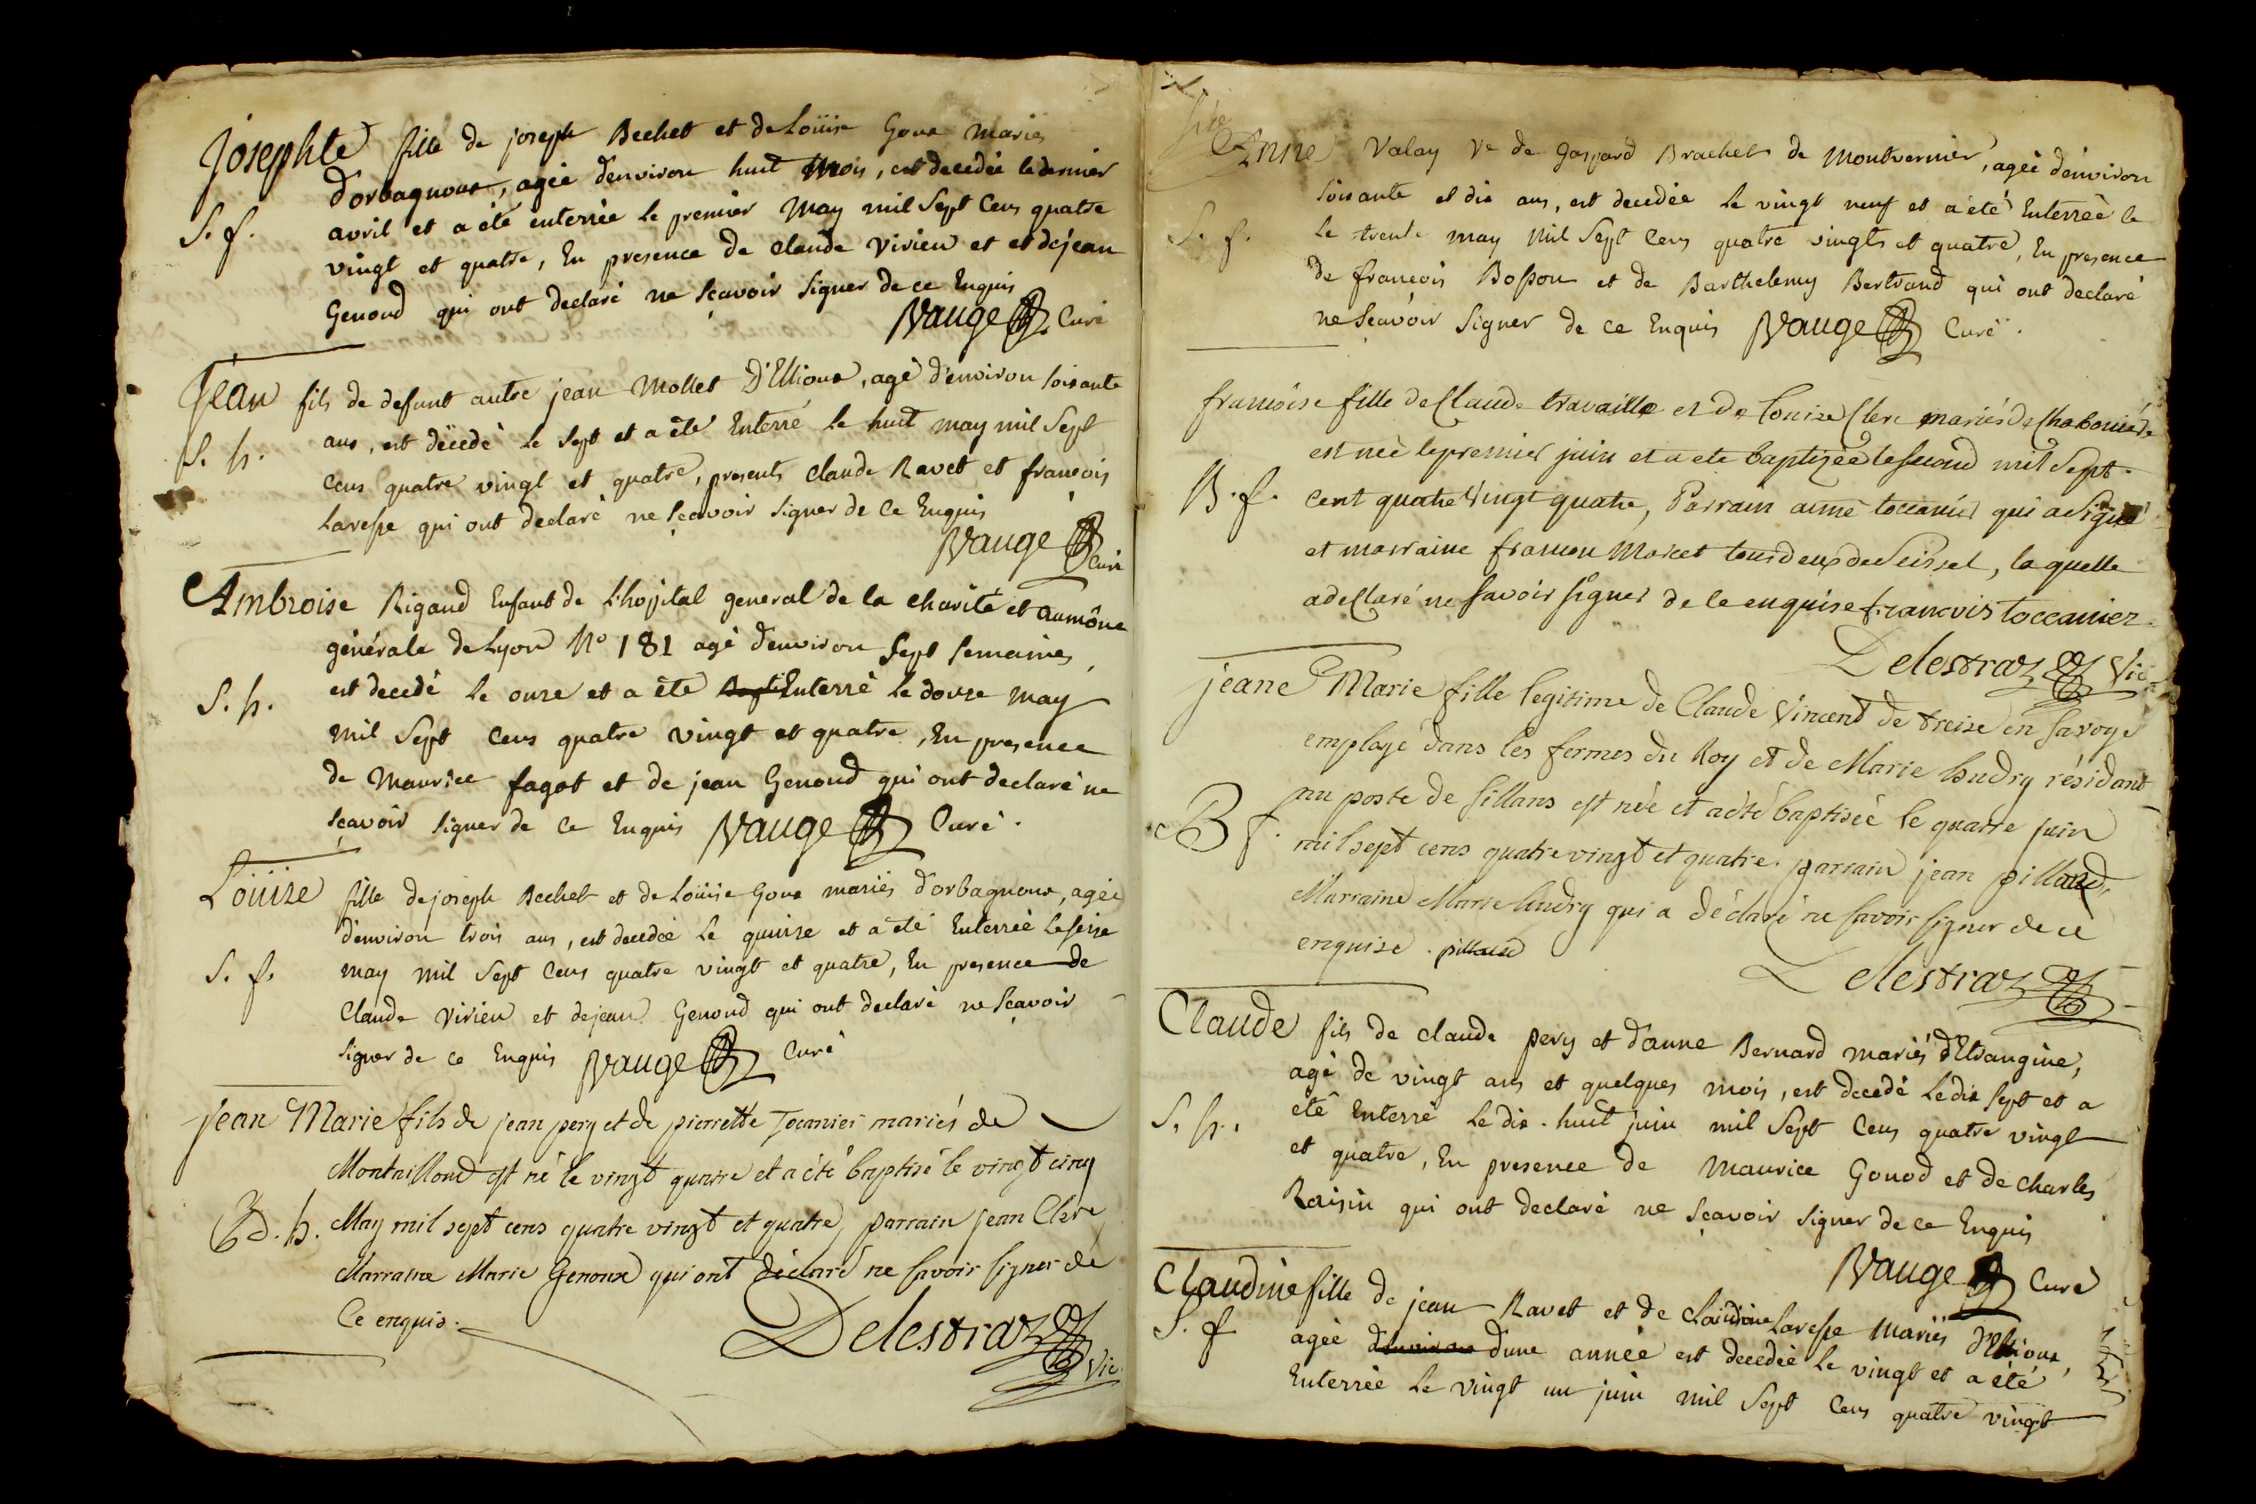 Josephte fille de joseph Bechet et de Loüise Goux mariés
d'orbagnoux, agée d'environ huit mois, est decedée le dernier
S. f. avril et a été enterrée le premier may mil sept cens quatre
vingt et quatre, En presence de claude Vivien et et de jean
Genoud qui ont declaré ne sçavoir signer de ce Enquis
Vauge Curé
Jean fils de defunt autre jean Mollet D'Ellioux, agé d'environ soixante
S. h. ans, est décedé le sept et a été Enterré le huit may mil sept
cens quatre vingt et quatre, presents claude Ravet et françois
Laresse qui ont declaré ne sçavoir signer de ce Enquis
Vauge Curé
Ambroise Rigaud Enfant de L'hopital general de la charité et aumône
générale de Lyon N° 181 agé d'environ sept semaines,
S. h. est decedé le onze et a été Enterré le douze may
mil sept cens quatre vingt et quatre, En presence
de Maurice fagot et de jean Genoud qui ont declaré ne
sçavoir signer de ce Enquis Vauge Curé.
Loüize fille de joseph Bechet et de Loüise Goux mariés d'orbagnoux, agée
d'environ trois ans, est decedée le quinze et a été Enterrée le seize
S. f. may mil sept cens quatre vingt et quatre, En presence de
Claude Vivien et de jean Genoud qui ont declaré ne sçavoir
signer de ce Enquis Vauge Curé
jean Marie fils de jean pery et de pierrette Tocanier mariés de
Montailloud est né le vingt quatre et a été baptisé le vingt cinq
B. h. May mil sept cens quatre vingt et quatre, parrain jean Clerc
Marraine Marie Genoux qui ont déclaré ne savoir signer de
Ce enquis.
Delestraz Vic.
Anne Valay Ve de gaspard Brachet de Montvernier, agée d'environ
soixante et dix ans, est decedée le vingt neuf et a été Enterrée le
S. f. le trente may mil sept cens quatre vingts et quatre, En presence
de françois Bosson et de Barthelemy Bertrand qui ont declaré
ne sçavoir signer de ce Enquis Vauge Curé.
françoise fille de Claude travaille et de Louize Clerc mariés de
est née le premier juin et a ete baptizée le second mil sept
B. f. cent quatre vingt quatre, Parrain aimé toccanier qui a signé
et marraine françon Marcet tous deux de Seissel, la quelle
a declaré ne savoir signer de ce enquise francois toccanier.
Delestraz Vic
jeane Marie fille legitime de Claude Vincent de treize en Savoye
employé dans les fermes du Roy et de Marie hudry résidant
B f. au poste de sillans est née et a été baptisée le quatre juin
mil sept cens quatre vingt et quatre. parrain jean pillaud,
Marraine Marie hudry qui a déclaré ne savoir signer de ce
enquise. pillaud
Delestraz
Claude fils de claude pery et d'anne Bernard mariés d'Etrangine,
agé de vingt ans et quelques mois, est decedé le dix sept et a
S. h. eté Enterré le dix-huit juin mil sept cens quatre vingt
et quatre, En presence de Maurice Gonod et de charles
Raisin qui ont declaré ne sçavoir signer de ce Enquis
Vauge Curé
Claudine fille de jean Ravet et de claudine Laresse mariés d'Ellioux,
S. f agée d'environ d'une année est decedée le vingt et a été
Enterrée le vingt un juin mil sept cens quatre vingt